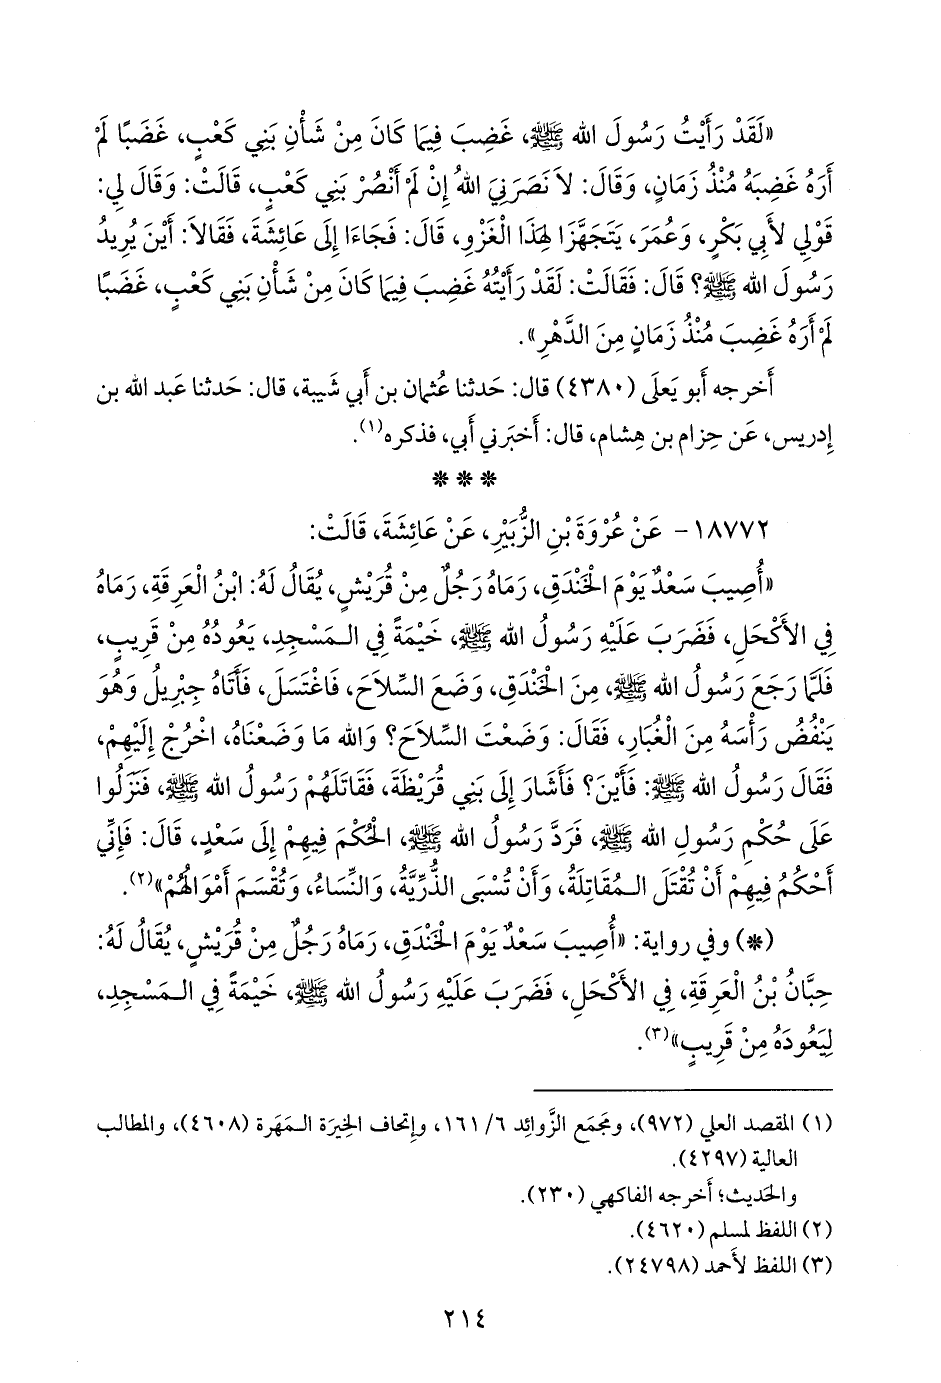 «لَقَدْ رَأَيْتُ رَسُولَ الله ﷺ، غَضِبَ فِيمَا كَانَ مِنْ شَأْنِ بَنِي كَعْبٍ، غَضَبًا لَمْ
أَرَهُ غَضِبَهُ مُنْذُ زَمَانٍ، وَقَالَ: لاَ نَصَرَنِيَ اللهُ إِنْ لَمْ أَنْصُرْ بَنِي كَعْبٍ، قَالَتْ: وَقَالَ لِي:
قَوْلِي لأَبِي بَكْرٍ، وَعُمَرَ، يَتَجَهَّزَا لِهَذَا الْغَزْوِ، قَالَ: فَجَاءَا إِلَى عَائِشَةَ، فَقَالاَ: أَيْنَ يُرِيدُ
رَسُولَ الله ﷺ؟ قَالَ: فَقَالَتْ: لَقَدْ رَأَيْتُهُ غَضِبَ فِيمَا كَانَ مِنْ شَأْنِ بَنِي كَعْبٍ، غَضَبًا
لَمْ أَرَهُ غَضِبَ مُنْذُ زَمَانٍ مِنَ الدَّهْرِ».
أَخرجه أَبو يَعلَى (٤٣٨٠) قال: حَدثنا عُثمان بن أَبي شَيبة، قال: حَدثنا عَبد الله بن
إِدريس، عَن حِزام بن هِشام، قال: أَخبَرني أَبي، فذكره(١).
* * *
١٨٧٧٢- عَنْ عُرْوَةَ بْنِ الزُّبَيْرِ، عَنْ عَائِشَةَ، قَالَتْ:
«أُصِيبَ سَعْدٌ يَوْمَ الْخَنْدَقِ، رَمَاهُ رَجُلٌ مِنْ قُرَيْشٍ، يُقَالُ لَهُ: ابْنُ الْعَرِقَةِ، رَمَاهُ
فِي الأَكْحَلِ، فَضَرَبَ عَلَيْهِ رَسُولُ الله ﷺ، خَيْمَةً فِي الْمَسْجِدِ، يَعُودُهُ مِنْ قَرِيبٍ،
فَلَمَّا رَجَعَ رَسُولُ الله ﷺ، مِنَ الْخَنْدَقِ، وَضَعَ السِّلاَحَ، فَاغْتَسَلَ، فَأَتَاهُ جِبْرِيلُ وَهُوَ
يَنْفُضُ رَأْسَهُ مِنَ الْغُبَارِ، فَقَالَ: وَضَعْتَ السِّلاَحَ؟ وَالله مَا وَضَعْنَاهُ، اخْرُجْ إِلَيْهِمْ،
فَقَالَ رَسُولُ الله ﷺ: فَأَيْنَ؟ فَأَشَارَ إِلَى بَنِي قُرَيْظَةَ، فَقَاتَلَهُمْ رَسُولُ الله ﷺ، فَنَزَلُوا
عَلَى حُكْمِ رَسُولِ الله ﷺ، فَرَدَّ رَسُولُ الله ﷺ، الْحُكْمَ فِيهِمْ إِلَى سَعْدٍ، قَالَ: فَإِنِّي
أَحْكُمُ فِيهِمْ أَنْ تُقْتَلَ الْمُقَاتِلَةُ، وَأَنْ تُسْبَى الذُّرِّيَّةُ، وَالنِّسَاءُ، وَتُقْسَمَ أَمْوَالُهُمْ»(٢).
(*) وفي رواية: «أُصِيبَ سَعْدٌ يَوْمَ الْخَنْدَقِ، رَمَاهُ رَجُلٌ مِنْ قُرَيْشٍ، يُقَالُ لَهُ:
حِبَّانُ بْنُ الْعَرِقَةِ، فِي الأَكْحَلِ، فَضَرَبَ عَلَيْهِ رَسُولُ الله ﷺ، خَيْمَةً فِي الْمَسْجِدِ،
لِيَعُودَهُ مِنْ قَرِيبٍ»(٣).
(١) المقصد العلي (٩٧٢)، ومَجمَع الزَّوائِد ٦/ ١٦١، وإِتحاف الخِيرَة الـمَهَرة (٤٦٠٨)، والمطالب
العالية (٤٢٩٧).
والحَديث؛ أَخرجه الفاكهي (٢٣٠).
(٢) اللفظ لمسلم (٤٦٢٠).
(٣) اللفظ لأَحمد (٢٤٧٩٨).
٢١٤